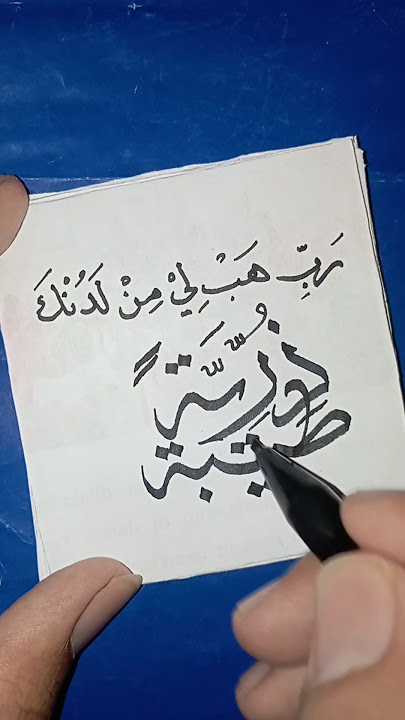 رَبِّ هَبْ لِيْ مِنْ لَدُنْكَ
ذُرِّيَّةً
طيبة